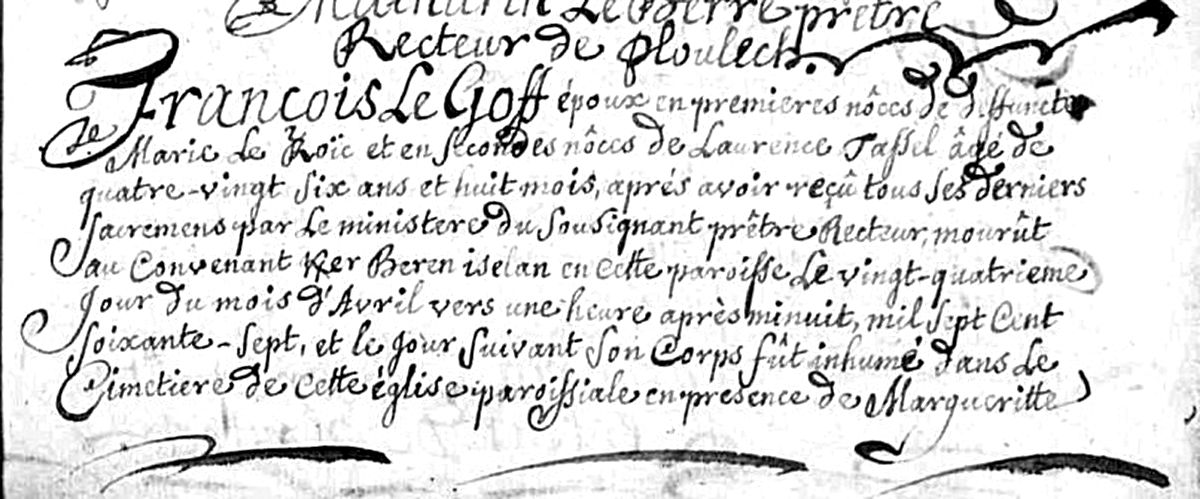 Mathurin Le Berre prêtre
Recteur de Ploulech.
François Le Goff époux en premieres nôces de deffuncte
Marie Le Roïc et en secondes nôces de Laurence Tassel âgé de
quatre-vingt six ans et huit mois, aprés avoir reçû tous ses derniers
sacremens par Le ministere du sousignant prêtre Recteur, mourût
au Convenant Ker Beren iselan en cette paroisse Le vingt-quatrieme
jour du mois d'Avril vers une heure après minuit, mil sept Cent
soixante-sept, et le jour suivant son Corps fût inhumé dans Le
Cimetiere de cette église paroissiale en presence de Margueritte